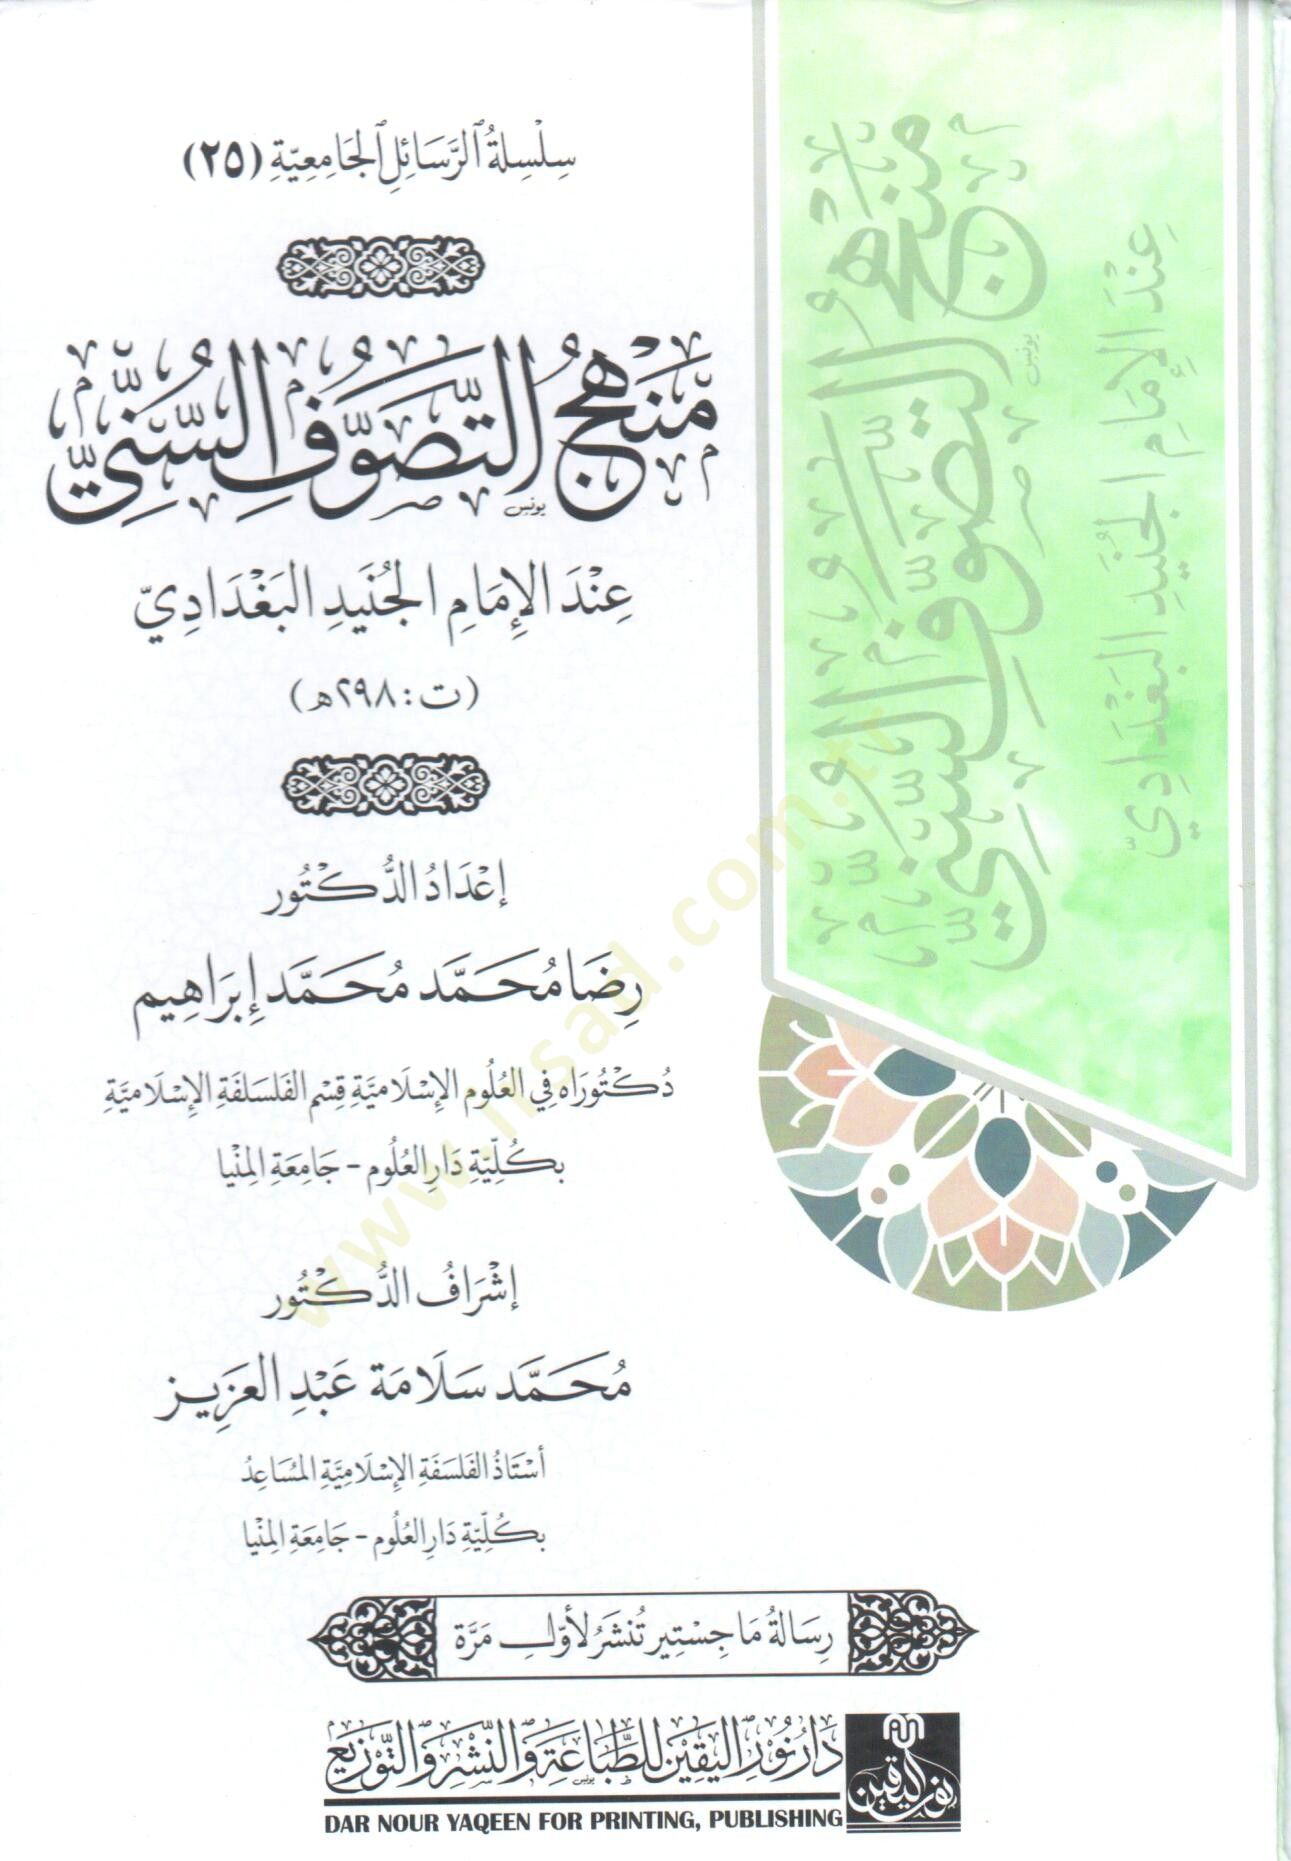 سِلْسِلَةُ ٱلرَّسَائِلِ ٱلْجَامِعِيَّةِ (٢٥)
مَنْهَجُ التَّصَوُّفِ السُّنِّيِّ
يونس
عِنْدَ الإِمَامِ الجُنَيدِ البَغْدَادِيّ
(ت: ٢٩٨هـ)
إعْدَادُ الدُّكْتُور
رِضَا مُحَمَّد مُحَمَّد إِبْرَاهِيم
دُكْتُورَاه فِي العُلُومِ الإِسْلَامِيَّةِ قِسْمِ الفَلسَفَةِ الإِسْلَامِيَّةِ
بِكُلِّيَّةِ دَارِ العُلُوم - جَامِعَةِ المِنْيَا
إشْرَافُ الدُّكْتُور
مُحَمَّد سَلَامَة عَبْدِ العَزِيز
أسْتَاذُ الفَلسَفَةِ الإِسْلَامِيَّةِ المُسَاعِدُ
بِكُلِّيَّةِ دَارِ العُلُوم - جَامِعَةِ المِنْيَا
رِسَالةُ مَاجِسْتِير تُنْشَرُ لأَوَّلِ مَرَّة
دَارُ نُورِ اليَقِينِ لِلطِّبَاعَةِ وَالنَّشْرِ وَالتَّوْزِيعِ
DAR NOUR YAQEEN FOR PRINTING, PUBLISHING
نور اليقين
مَنْهَجُ التَّصَوُّفِ السُّنِّيِّ
يونس
عِنْدَ الإِمَامِ الجُنَيدِ البَغْدَادِيّ
www.irsad.com.tr